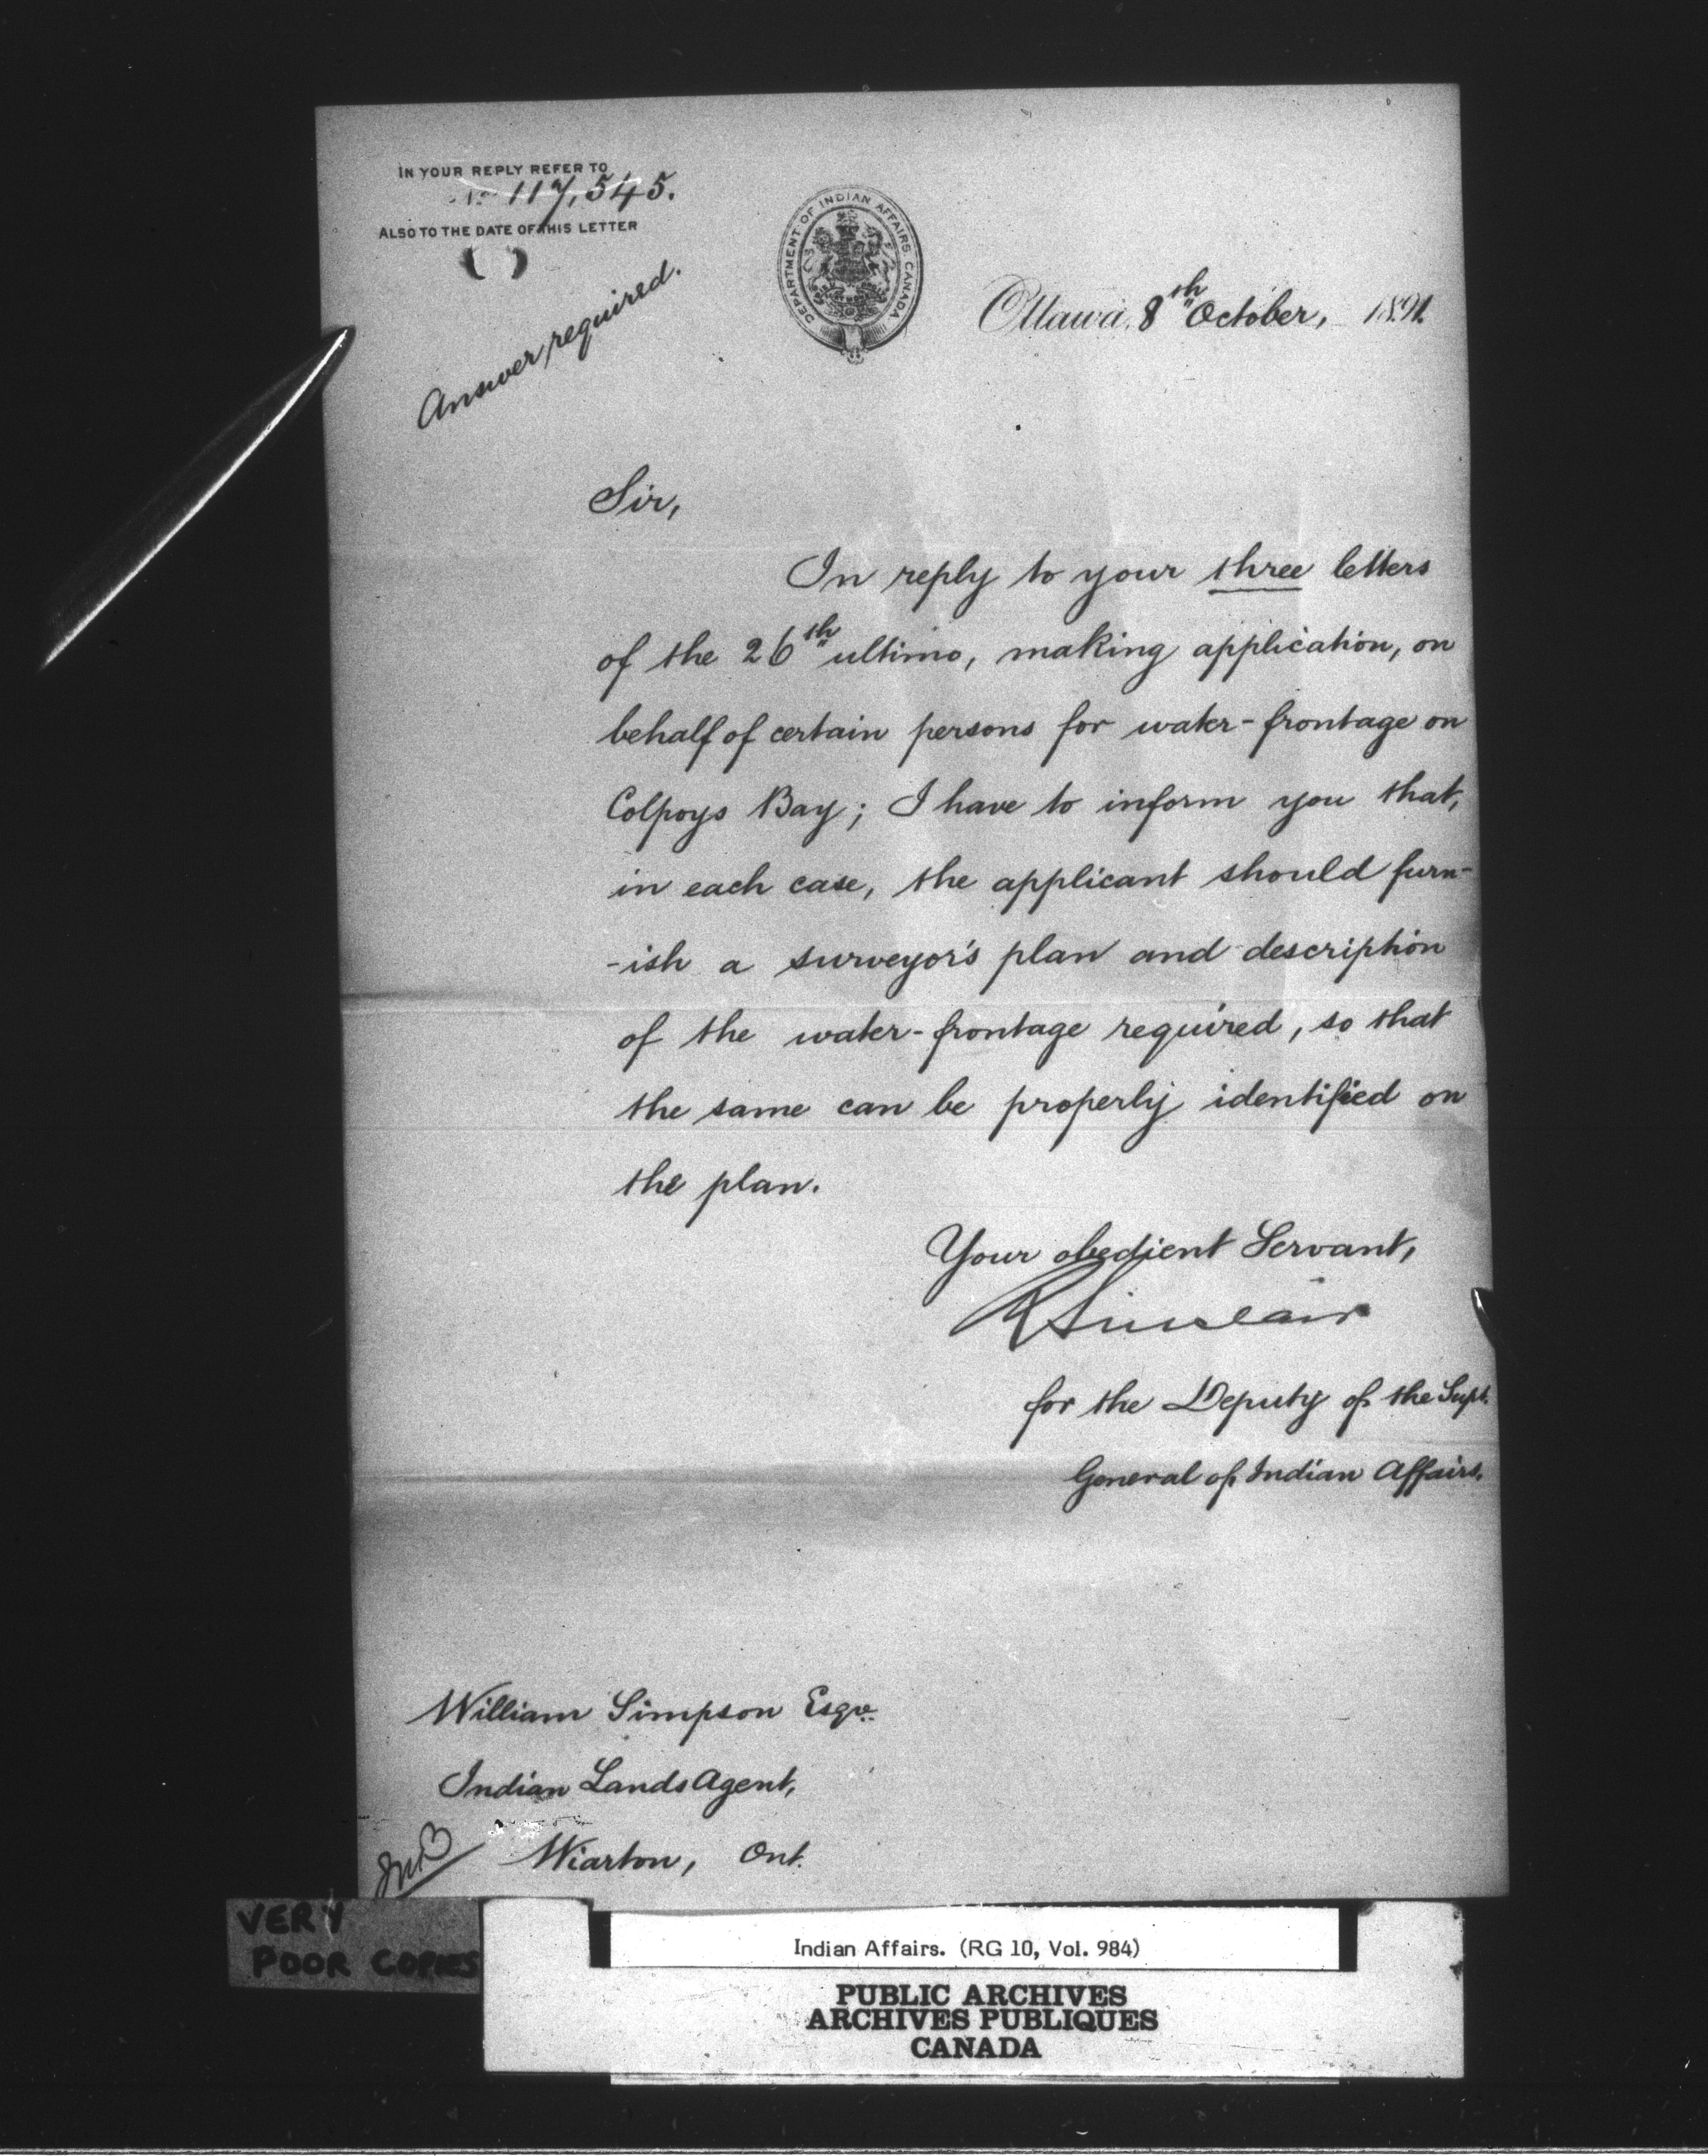 IN YOUR REPLY REFER TO
No 117,545.
ALSO TO THE DATE OF THIS LETTER
Answer required.
DEPARTMENT OF INDIAN AFFAIRS CANADA
Ottawa, 8th October, 1891.
Sir,
In reply to your three letters
of the 26th ultimo, making application, on
behalf of certain persons for water-frontage on
Colpoys Bay; I have to inform you that,
in each case, the applicant should furn-
-ish a surveyor's plan and description
of the water-frontage required, so that
the same can be properly identified on
the plan.
Your obedient Servant,
R Sinclair
for the Deputy of the Supt.
General of Indian Affairs.
William Simpson Esqre.
Indian Lands Agent,
Wiarton, Ont.
VERY
POOR COPIES
Indian Affairs. (RG 10, Vol. 984)
PUBLIC ARCHIVES
ARCHIVES PUBLIQUES
CANADA